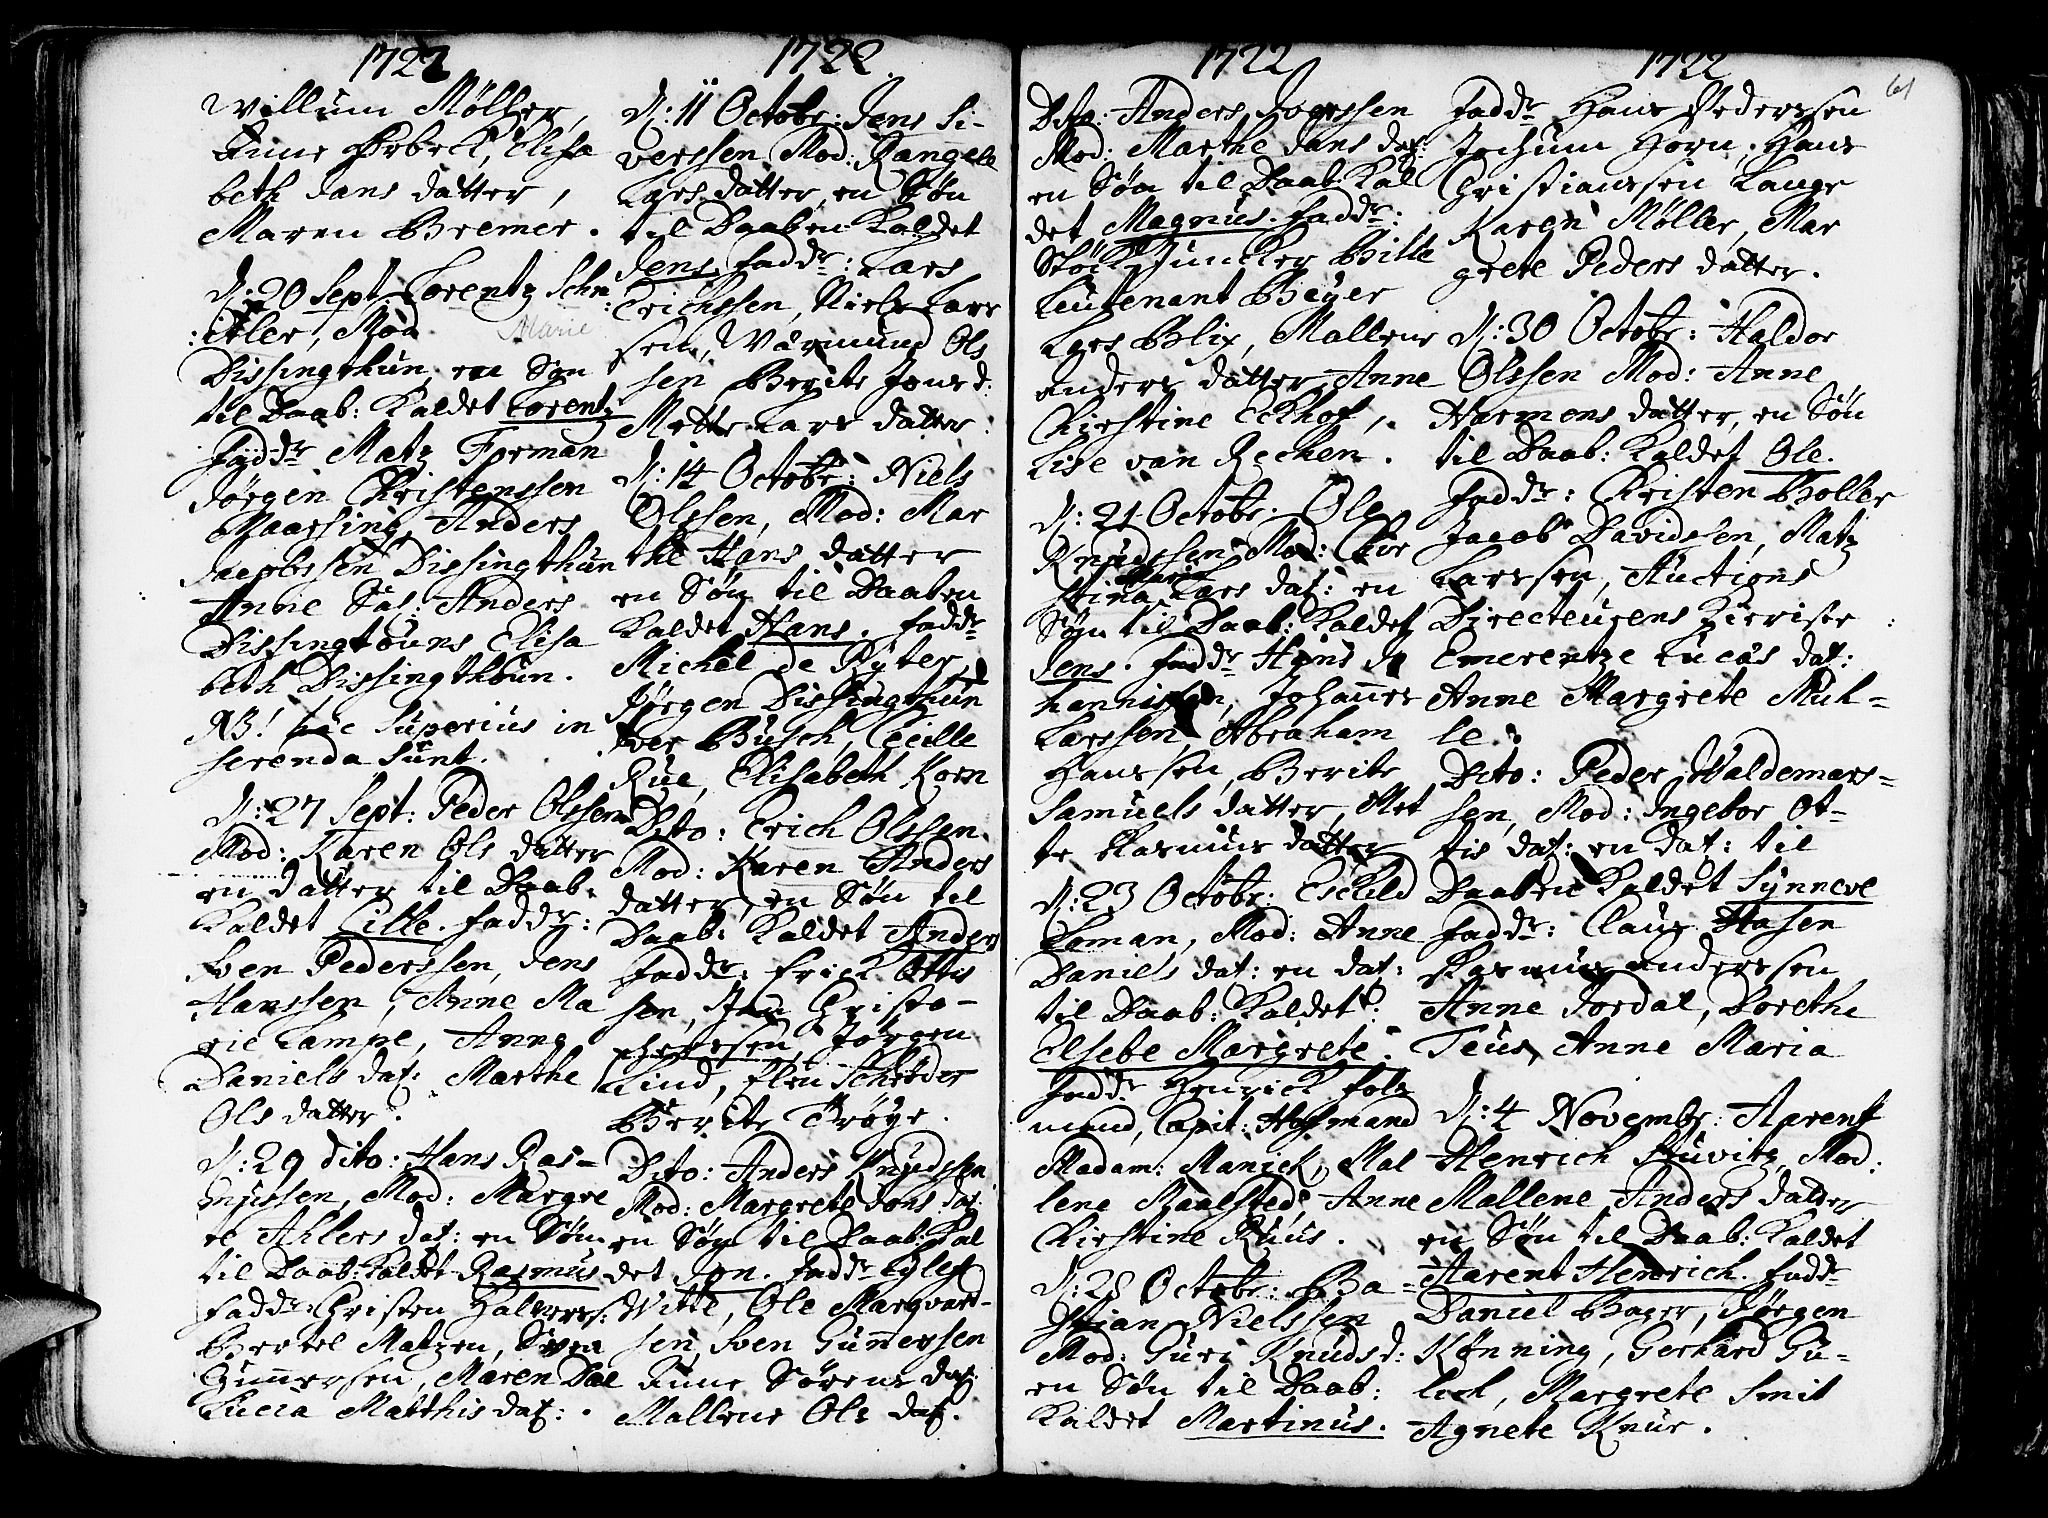 1722
Willum Møller,
Anne Ørbeck, Elisa
beth Jans datter,
Maren Bremer.
D: 20 Sept. Lorentz Schn
:itler, Mod Marie
Dissingthun, en Søn
til Daab: Kaldet Lorentz
Faddr Matz Forman
Jørgen Christenssen
Maarsing, Anders
Jacobssen Dissingthun
Anne Sal: Anders
Dissingtouns Elisa
beth Dissingthoun.
NB! hæc Superius in
serenda sunt.
D: 27 Sept: Peder Olssen
Mod: Karen Ols datter
en datter til Daab:
Kaldet Cille. Faddr:
Sven Pederssen, Jens
Hanssen, Anne Ma
rie Lampe, Anne
Daniels dat: Marthe
Ols datter.
D: 29 dito: Hans Ras-
mussen, Mod: Margre
te Ahlers dat: en Søn
til Daab: Kaldet Rasmus
Faddr Christen Halvers:
Bertel Matzen, Sven
Gunnersen, Maren Dal
Lucia Matthis dat:.
1722
D: 11 Octobr: Jens Si-
verssen Mod: Rangele
Lars datter, en Søn
til Daaben Kaldet
Jens. Faddr: Lars
Erichssen, Niels Lars
sen, Wærmund Ols
sen Berite Jons d:
Mette Lars datter.
D: 14 Octobr: Niels
Olssen, Mod: Mar
the Hans datter
en Søn til Daaben
Kaldet Hans. Faddr
Michel de Ryter,
Jørgen Dissingthun
Iver Busch, Cecille
Rue, Elisabeth Korn
Dito: Erich Olssen.
Mod: Karen Anders
datter, en Søn til
Daab: Kaldet Anders
Faddr: Erick Ottis
sen, Jan Christo-
pherssen Jørgen
Lind, Elen Schrøder
Berite Trøye.
Dito: Anders Knudssen
Mod: Margrete Jons dat:
en Søn til Daab: Kal
det Jon. Faddr Eylert
Witte, Ole Marqvard-
sen, Sven Gunnerssen
Anne Sørens dat:
Mallene Ols dat.
1722
Dito: Anders Iverssen
Mod: Marthe Jans dat:
en Søn til Daab: Kal
det Magnus. Faddr:
Støckjuncker Bille
Leutenant Beyer
Lars Blix, Mallene
Anders datter, Anne
Chirstine Eckhof,
Lise van Rechen.
D: 21 Octobr: Ole
Knudssen Mod: Chir
stina Maria Lars dat: en
Søn til Daab: Kaldet
Jens. Faddr Hans Jo
hannissen, Johannes
Larssen, Abraham
Hanssen, Berite
Samuels datter, Met
te Rasmus datter
D: 23 Octobr: Eskild
Laman, Mod: Anne
Daniels dat: en dat:
til Daab: Kaldet:
Elsebe Margrete.
Faddr Henrich Folq
mand, Capit: Hofmand
Madam: Manick, Mal
lene Maalsted, Anne
Chirstine Ruus.
D: 28 Octobr: Ba-
stian Nielssen
Mod: Guri Knuds d:
en Søn til Daab:
Kaldet Martinus.
1722
61
Faddr Hans Pederssen
Jochum Horn, Hans
Christianssen Lange
Karen Møller, Mar
grete Peders datter.
D: 30 Octobr: Haldor
Olssen Mod: Anne
Harmens datter, en Søn
til Daab: Kaldet Ole.
Faddr: Christen Boller
Jacob Davidssen, Matz
Larssen, Auctions
Directeurens
Emerentze Lucas dat:
Anne Margrete Muh-
le.
Dito: Peder Waldemars-
sen, Mod: Ingebor Ot-
tis dat: en dat: til
Daaben Kaldet Synneve
Faddr: Claus Hasen
Rasmus Anderssen
Anne Jordal, Dorethe
Teus, Anne Maria
D: 4 Novembr: Aarent
Henrich Huvitz, Mod:
Mallene Anders datter
en Søn til Daab: Kaldet
Aarent Henrich. Faddr
Daniel Bager, Jørgen
Kønning, Gerhard Gu-
lich, Margrete Smit
Agnete Knur.